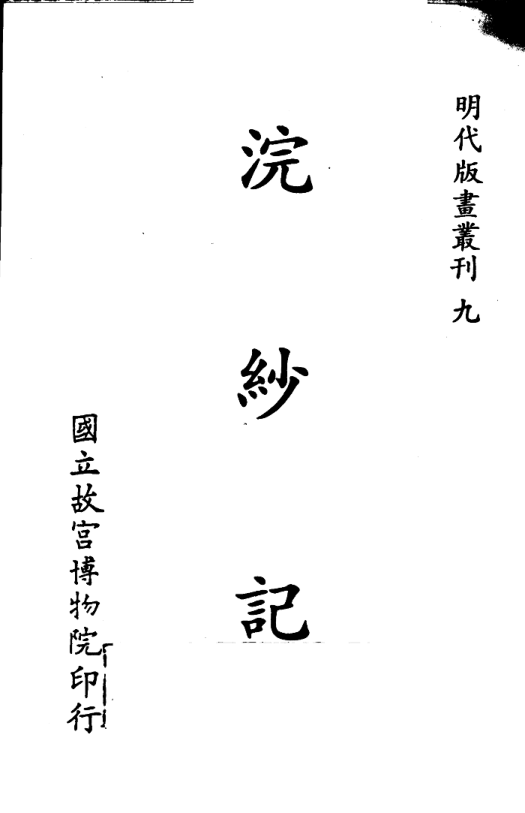 明代版畫叢刊 九
浣紗記
國立故宮博物院印行